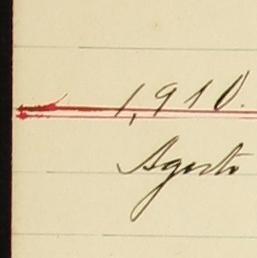 1,910.
Agosto